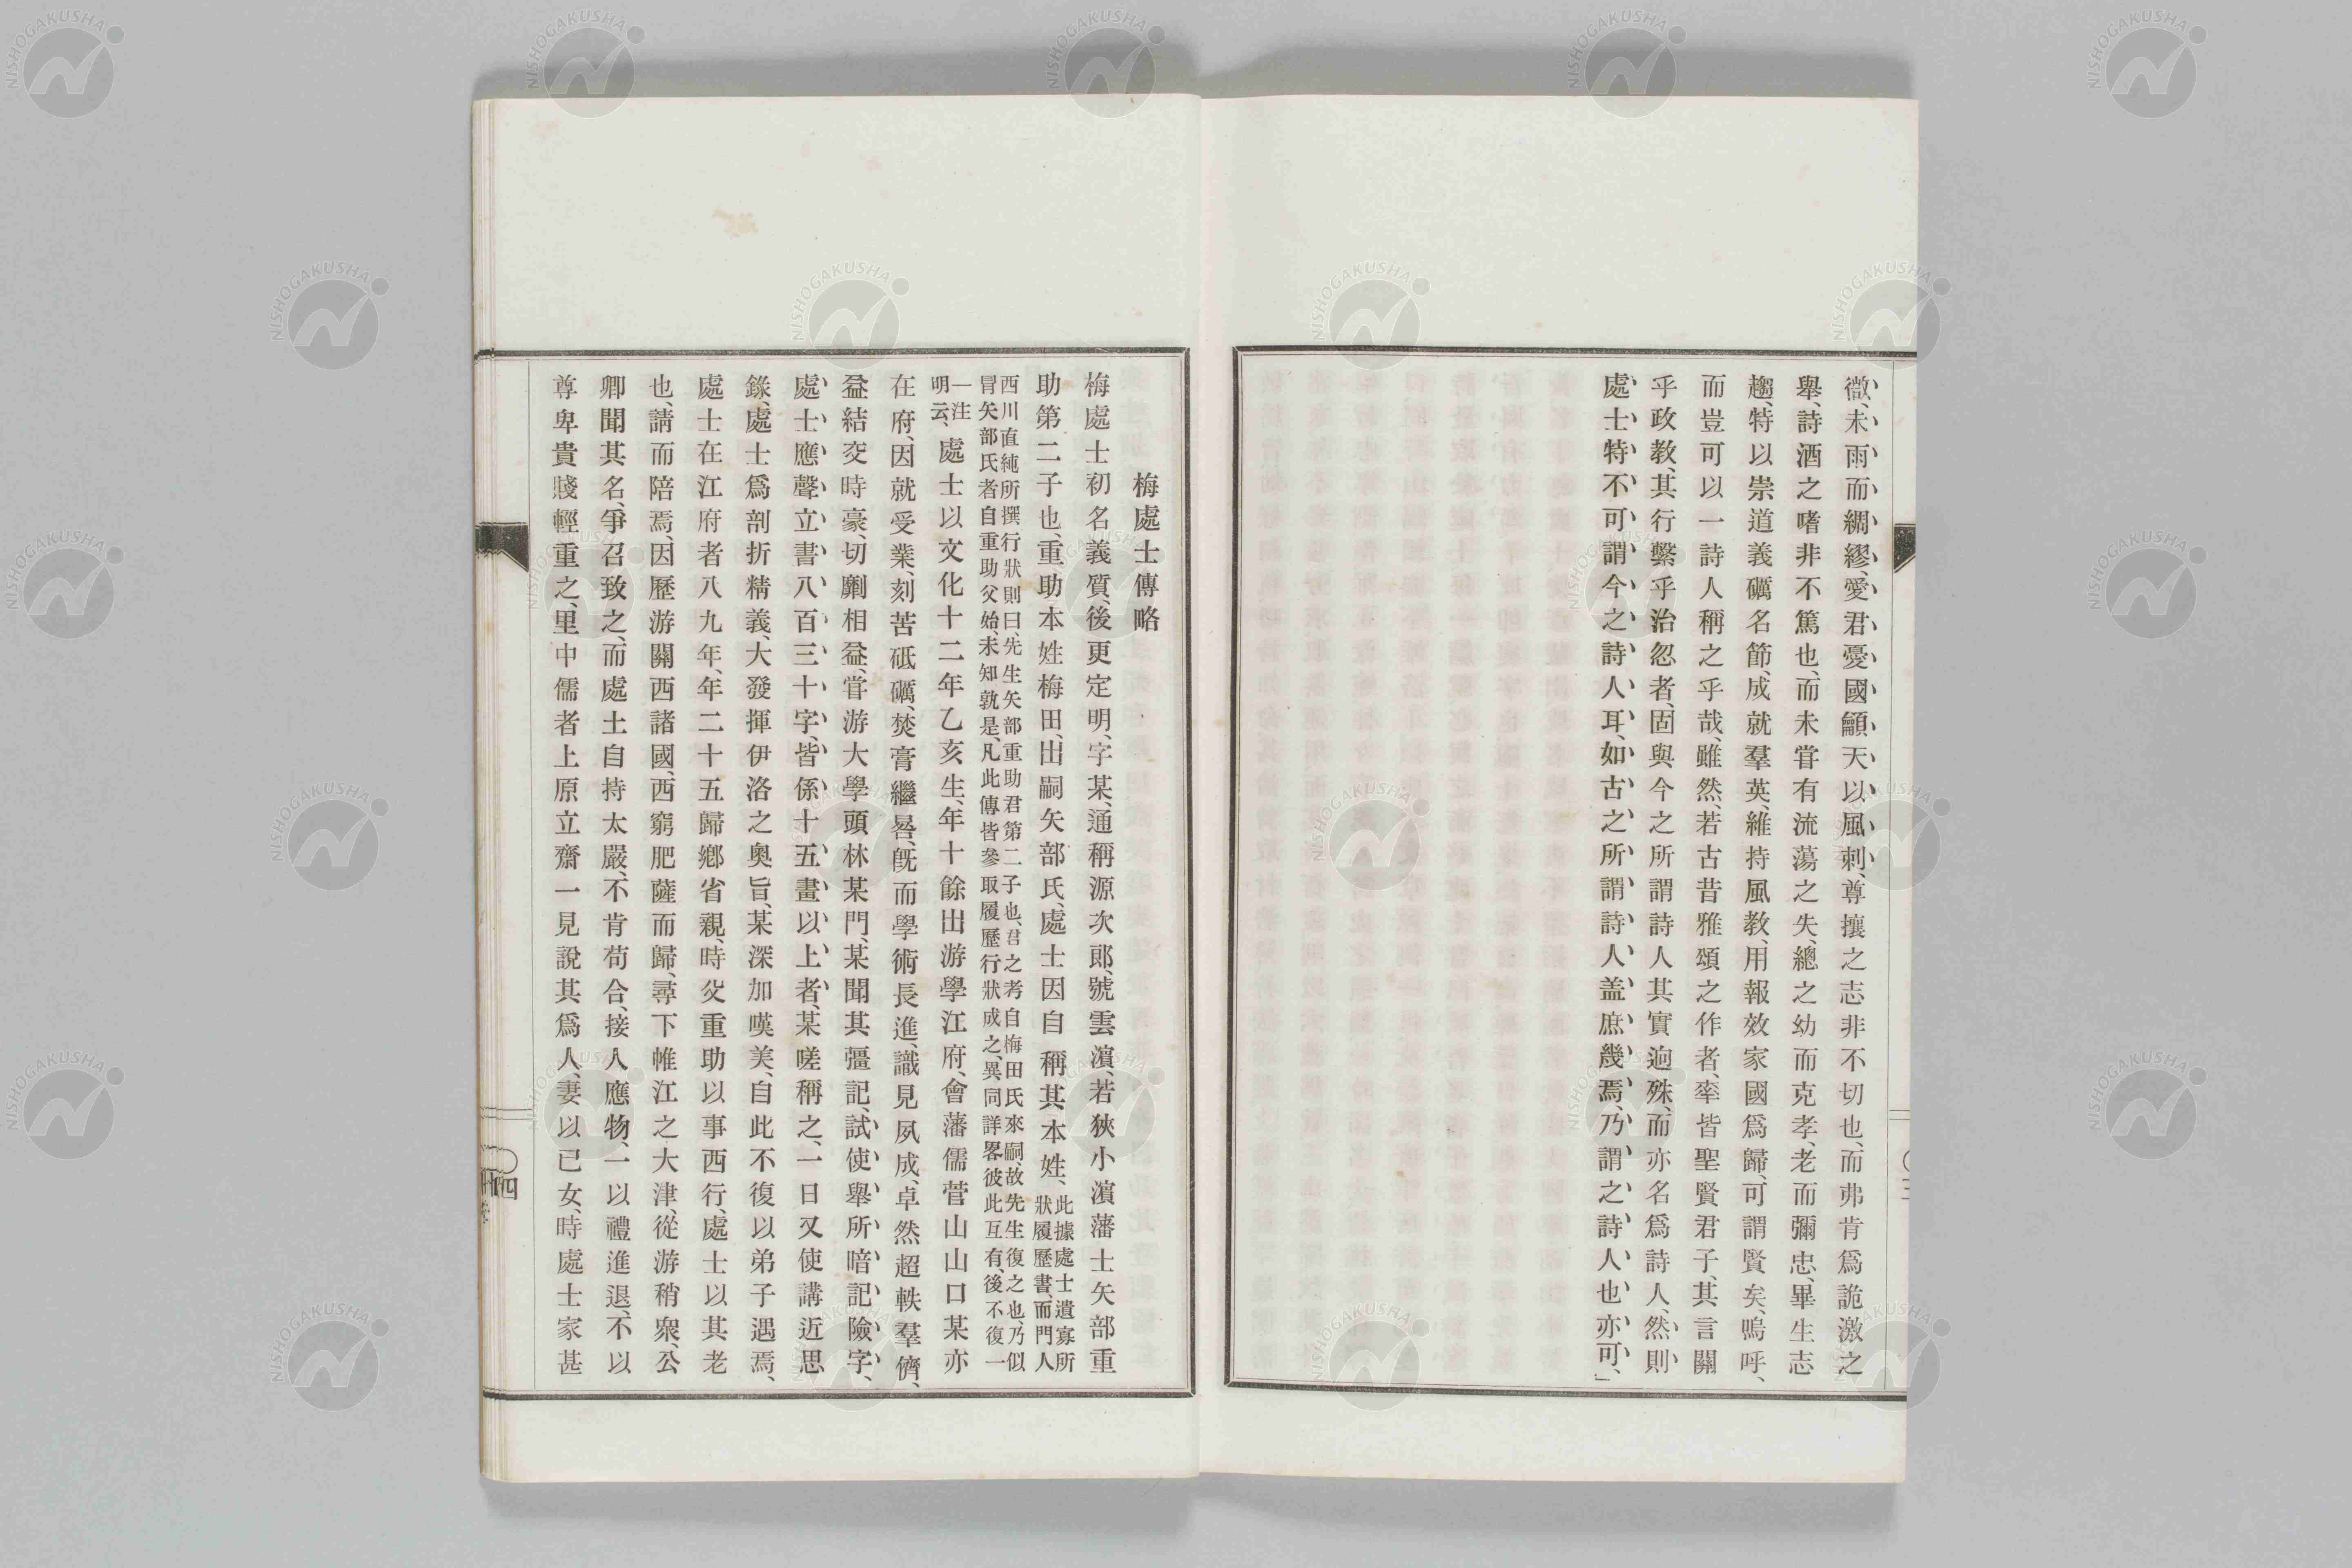 徵、未雨而綢繆、愛君憂國、顧天以風刺、尊攘之志非不切也、而弗肯爲詭激之
舉、詩酒之嗜非不篤也、而未甞有流蕩之失、總之幼而克孝、老而彌忠、畢生志
趨、特以崇道義礪名節、成就羣英、維持風教、用報效家國爲歸、可謂賢矣、嗚呼、
而豈可以一詩人稱之乎哉、雖然、若古昔雅頌之作者、率皆聖賢君子、其言關
乎政教、其行繫乎治忽者、固與今之所謂詩人其實逈殊、而亦名爲詩人、然則
處士特不可謂今之詩人耳、如古之所謂詩人盖庶幾焉、乃謂之詩人也亦可、」
〇三
梅處士傳略
梅處士初名義質、後更定明、字某、通稱源次郎、號雲濵、若狹小濵藩士矢部重
助第二子也、重助本姓梅田、出嗣矢部氏、處士因自稱其本姓、此據處士遺寡所
狀履歷書、而門人
西川直純所撰行狀則曰、先生矢部重助君第二子也、君之考自梅田氏來嗣故先生復之也乃似
冒矢部氏者自重助父始、未知孰是、凡此傳皆參取履歷行狀成之、異同詳畧彼此互有、後不復一
一注
明云、處士以文化十二年乙亥生、年十餘出游學江府、會藩儒菅山山口某亦
在府、因就受業、刻苦砥礪、焚膏繼晷、旣而學術長進、識見夙成、卓然超軼羣儕、
益結交時豪、切劘相益、甞游大學頭林某門、某聞其彊記、試使舉所暗記險字、
處士應聲立書八百三十字、皆係十五畫以上者、某嗟稱之、一日又使講近思
錄、處士爲剖折精義、大發揮伊洛之奧旨、某深加嘆美、自此不復以弟子遇焉、
處士在江府者八九年、年二十五歸鄕省親、時父重助以事西行、處士以其老
也、請而陪焉、因歷游關西諸國、西窮肥薩而歸、尋下帷江之大津、從游稍衆、公
卿聞其名、爭召致之、而處士自持太嚴、不肯苟合、接人應物、一以禮進退、不以
尊卑貴賤輕重之、里中儒者上原立齋一見說其爲人、妻以已女、時處士家甚
〇四
NISHOGAKUSHA